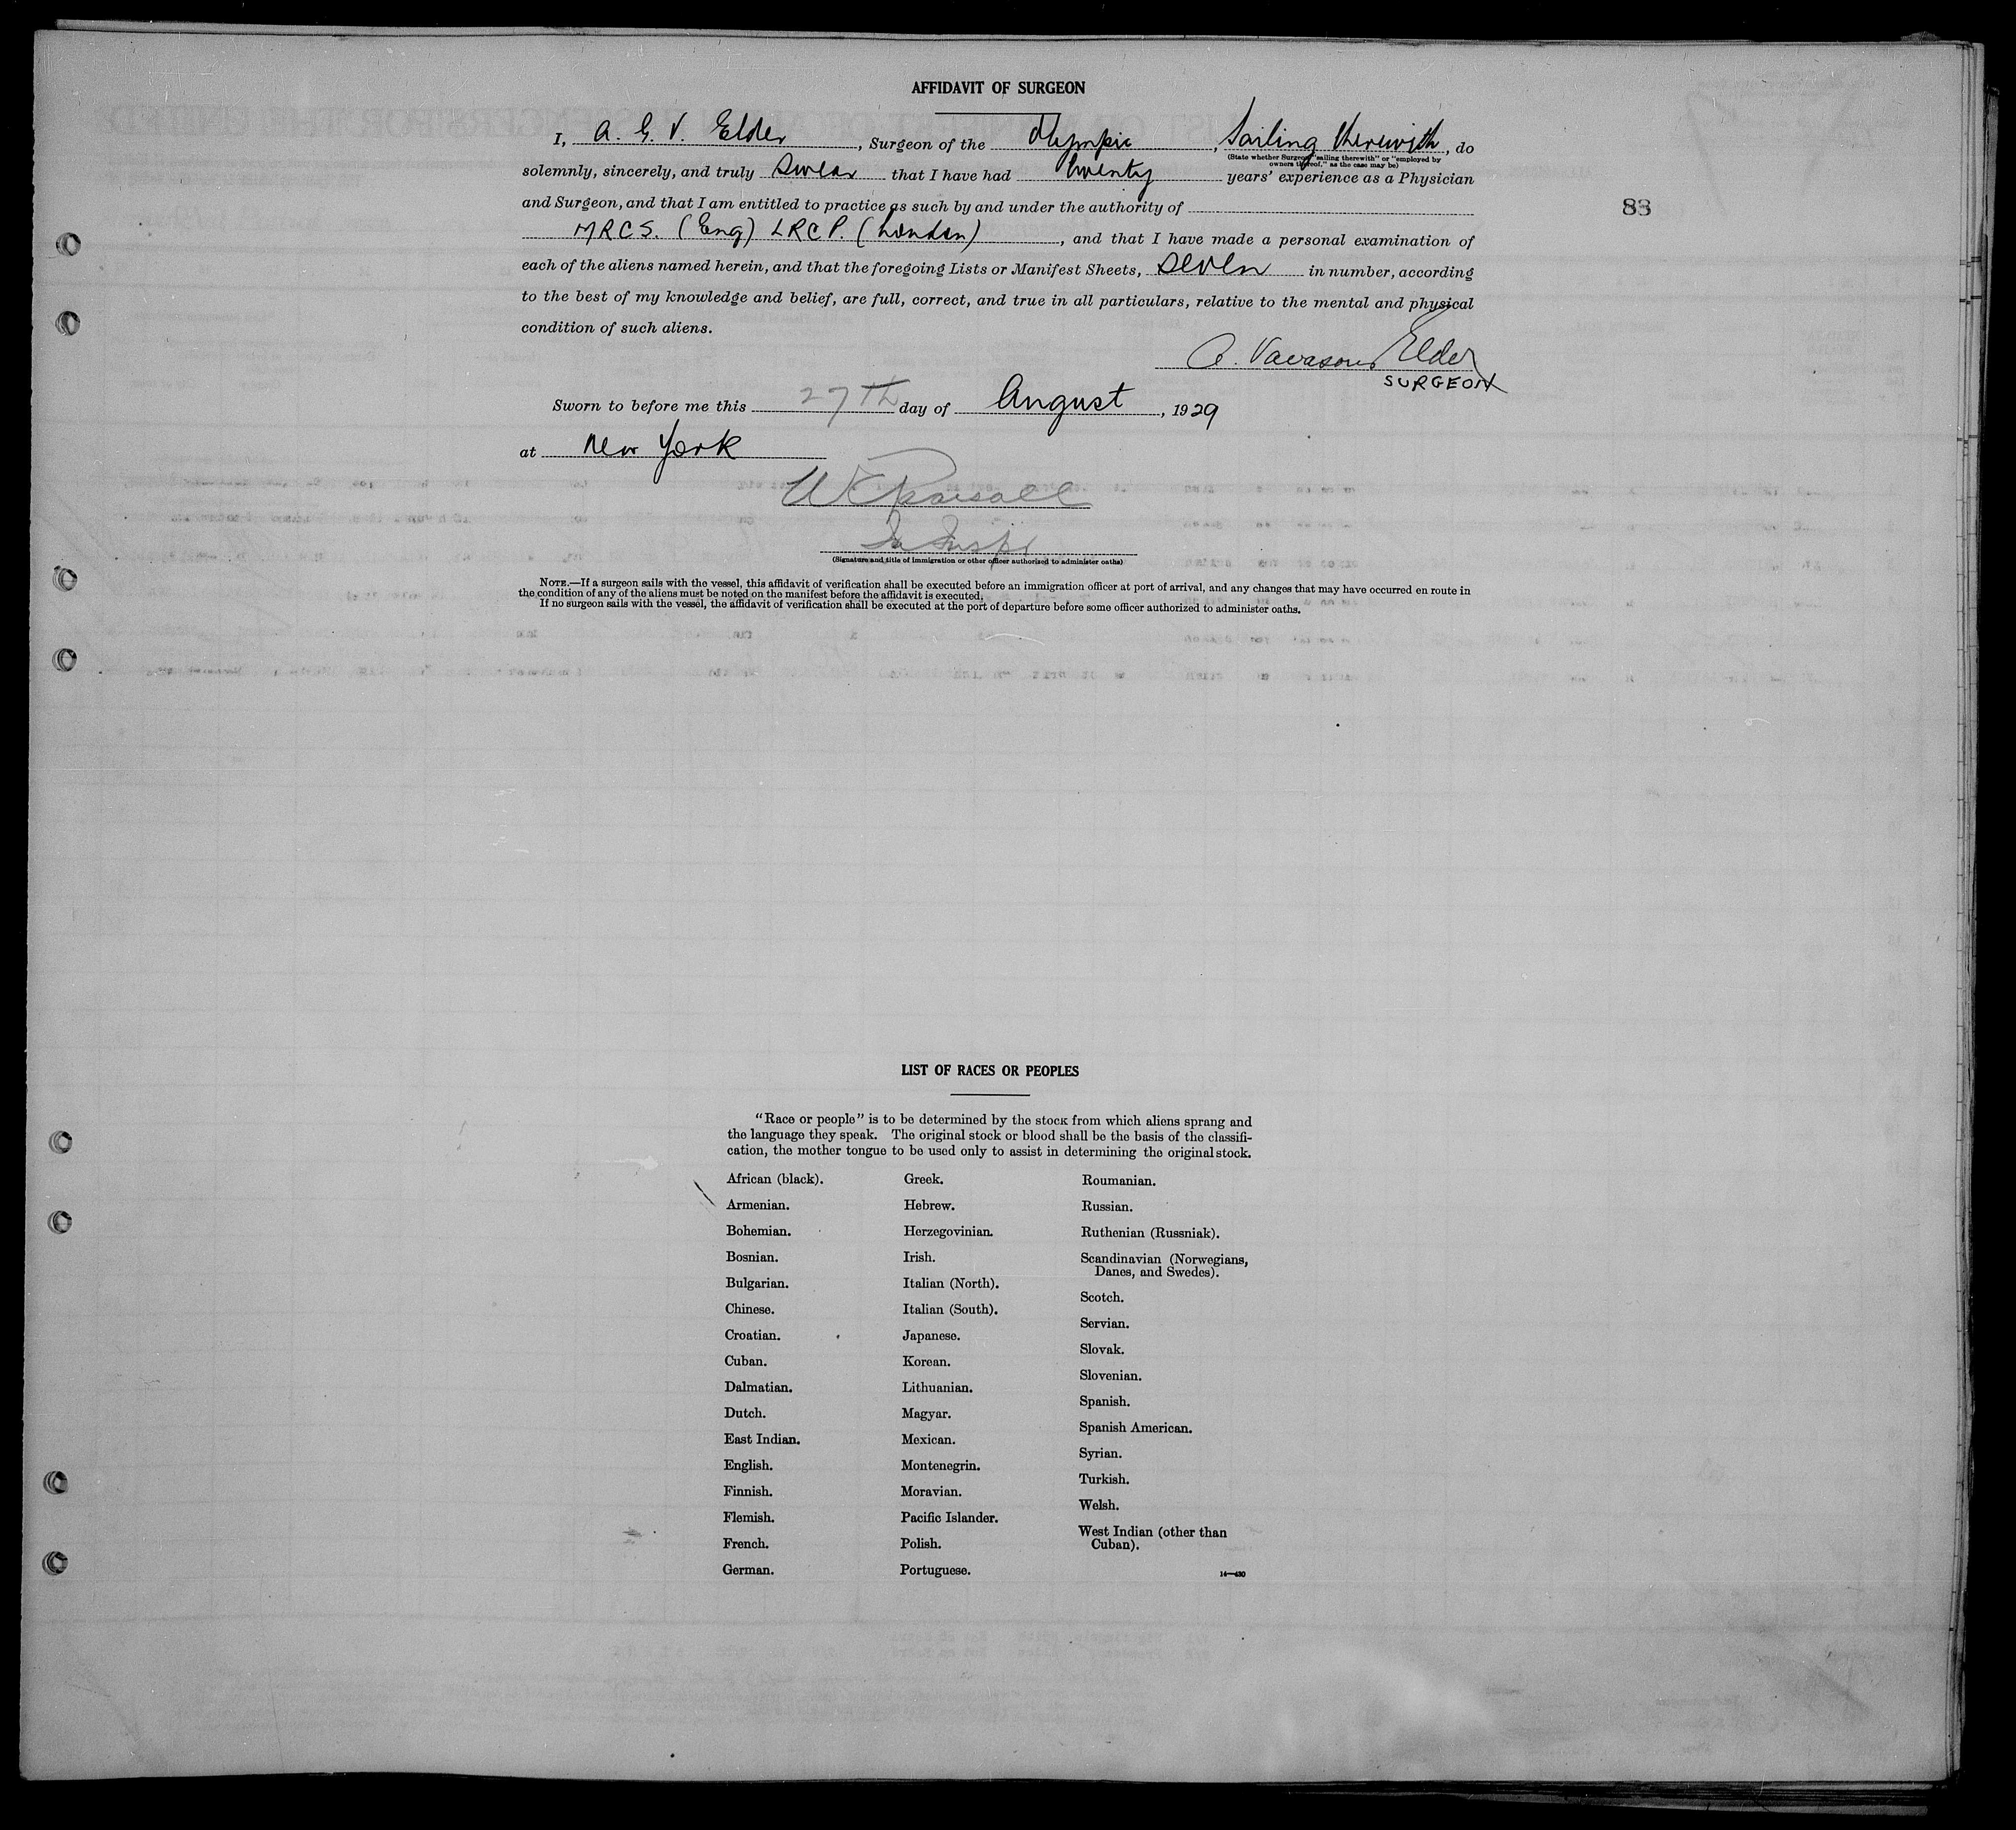 AFFIDAVIT OF SURGEON
I, A. G. V. Elder, Surgeon of the Olympic, Sailing therewith, do
(State whether Surgeon "sailing therewith" or "employed by
owners thereof," as the case may be)
solemnly, sincerely, and truly swear that I have had twenty years' experience as a Physician
and Surgeon, and that I am entitled to practice as such by and under the authority of
MRCS. (Eng) LRCP. (London), and that I have made a personal examination of
each of the aliens named herein, and that the foregoing Lists or Manifest Sheets, seven in number, according
to the best of my knowledge and belief, are full, correct, and true in all particulars, relative to the mental and physical
condition of such aliens.
A. Vavasour Elder
SURGEON
Sworn to before me this 27TH day of August, 1929
at New York
(Signature and title of immigration or other officer authorized to administer oaths)
NOTE.—If a surgeon sails with the vessel, this affidavit of verification shall be executed before an immigration officer at port of arrival, and any changes that may have occurred en route in
the condition of any of the aliens must be noted on the manifest before the affidavit is executed.
If no surgeon sails with the vessel, the affidavit of verification shall be executed at the port of departure before some officer authorized to administer oaths.
83
LIST OF RACES OR PEOPLES
"Race or people" is to be determined by the stock from which aliens sprang and
the language they speak. The original stock or blood shall be the basis of the classifi-
cation, the mother tongue to be used only to assist in determining the original stock.
African (black).
Armenian.
Bohemian.
Bosnian.
Bulgarian.
Chinese.
Croatian.
Cuban.
Dalmatian.
Dutch.
East Indian.
English.
Finnish.
Flemish.
French.
German.
Greek.
Hebrew.
Herzegovinian.
Irish.
Italian (North).
Italian (South).
Japanese.
Korean.
Lithuanian.
Magyar.
Mexican.
Montenegrin.
Moravian.
Pacific Islander.
Polish.
Portuguese.
Roumanian.
Russian.
Ruthenian (Russniak).
Scandinavian (Norwegians,
Danes, and Swedes).
Scotch.
Servian.
Slovak.
Slovenian.
Spanish.
Spanish American.
Syrian.
Turkish.
Welsh.
West Indian (other than
Cuban).
14—430